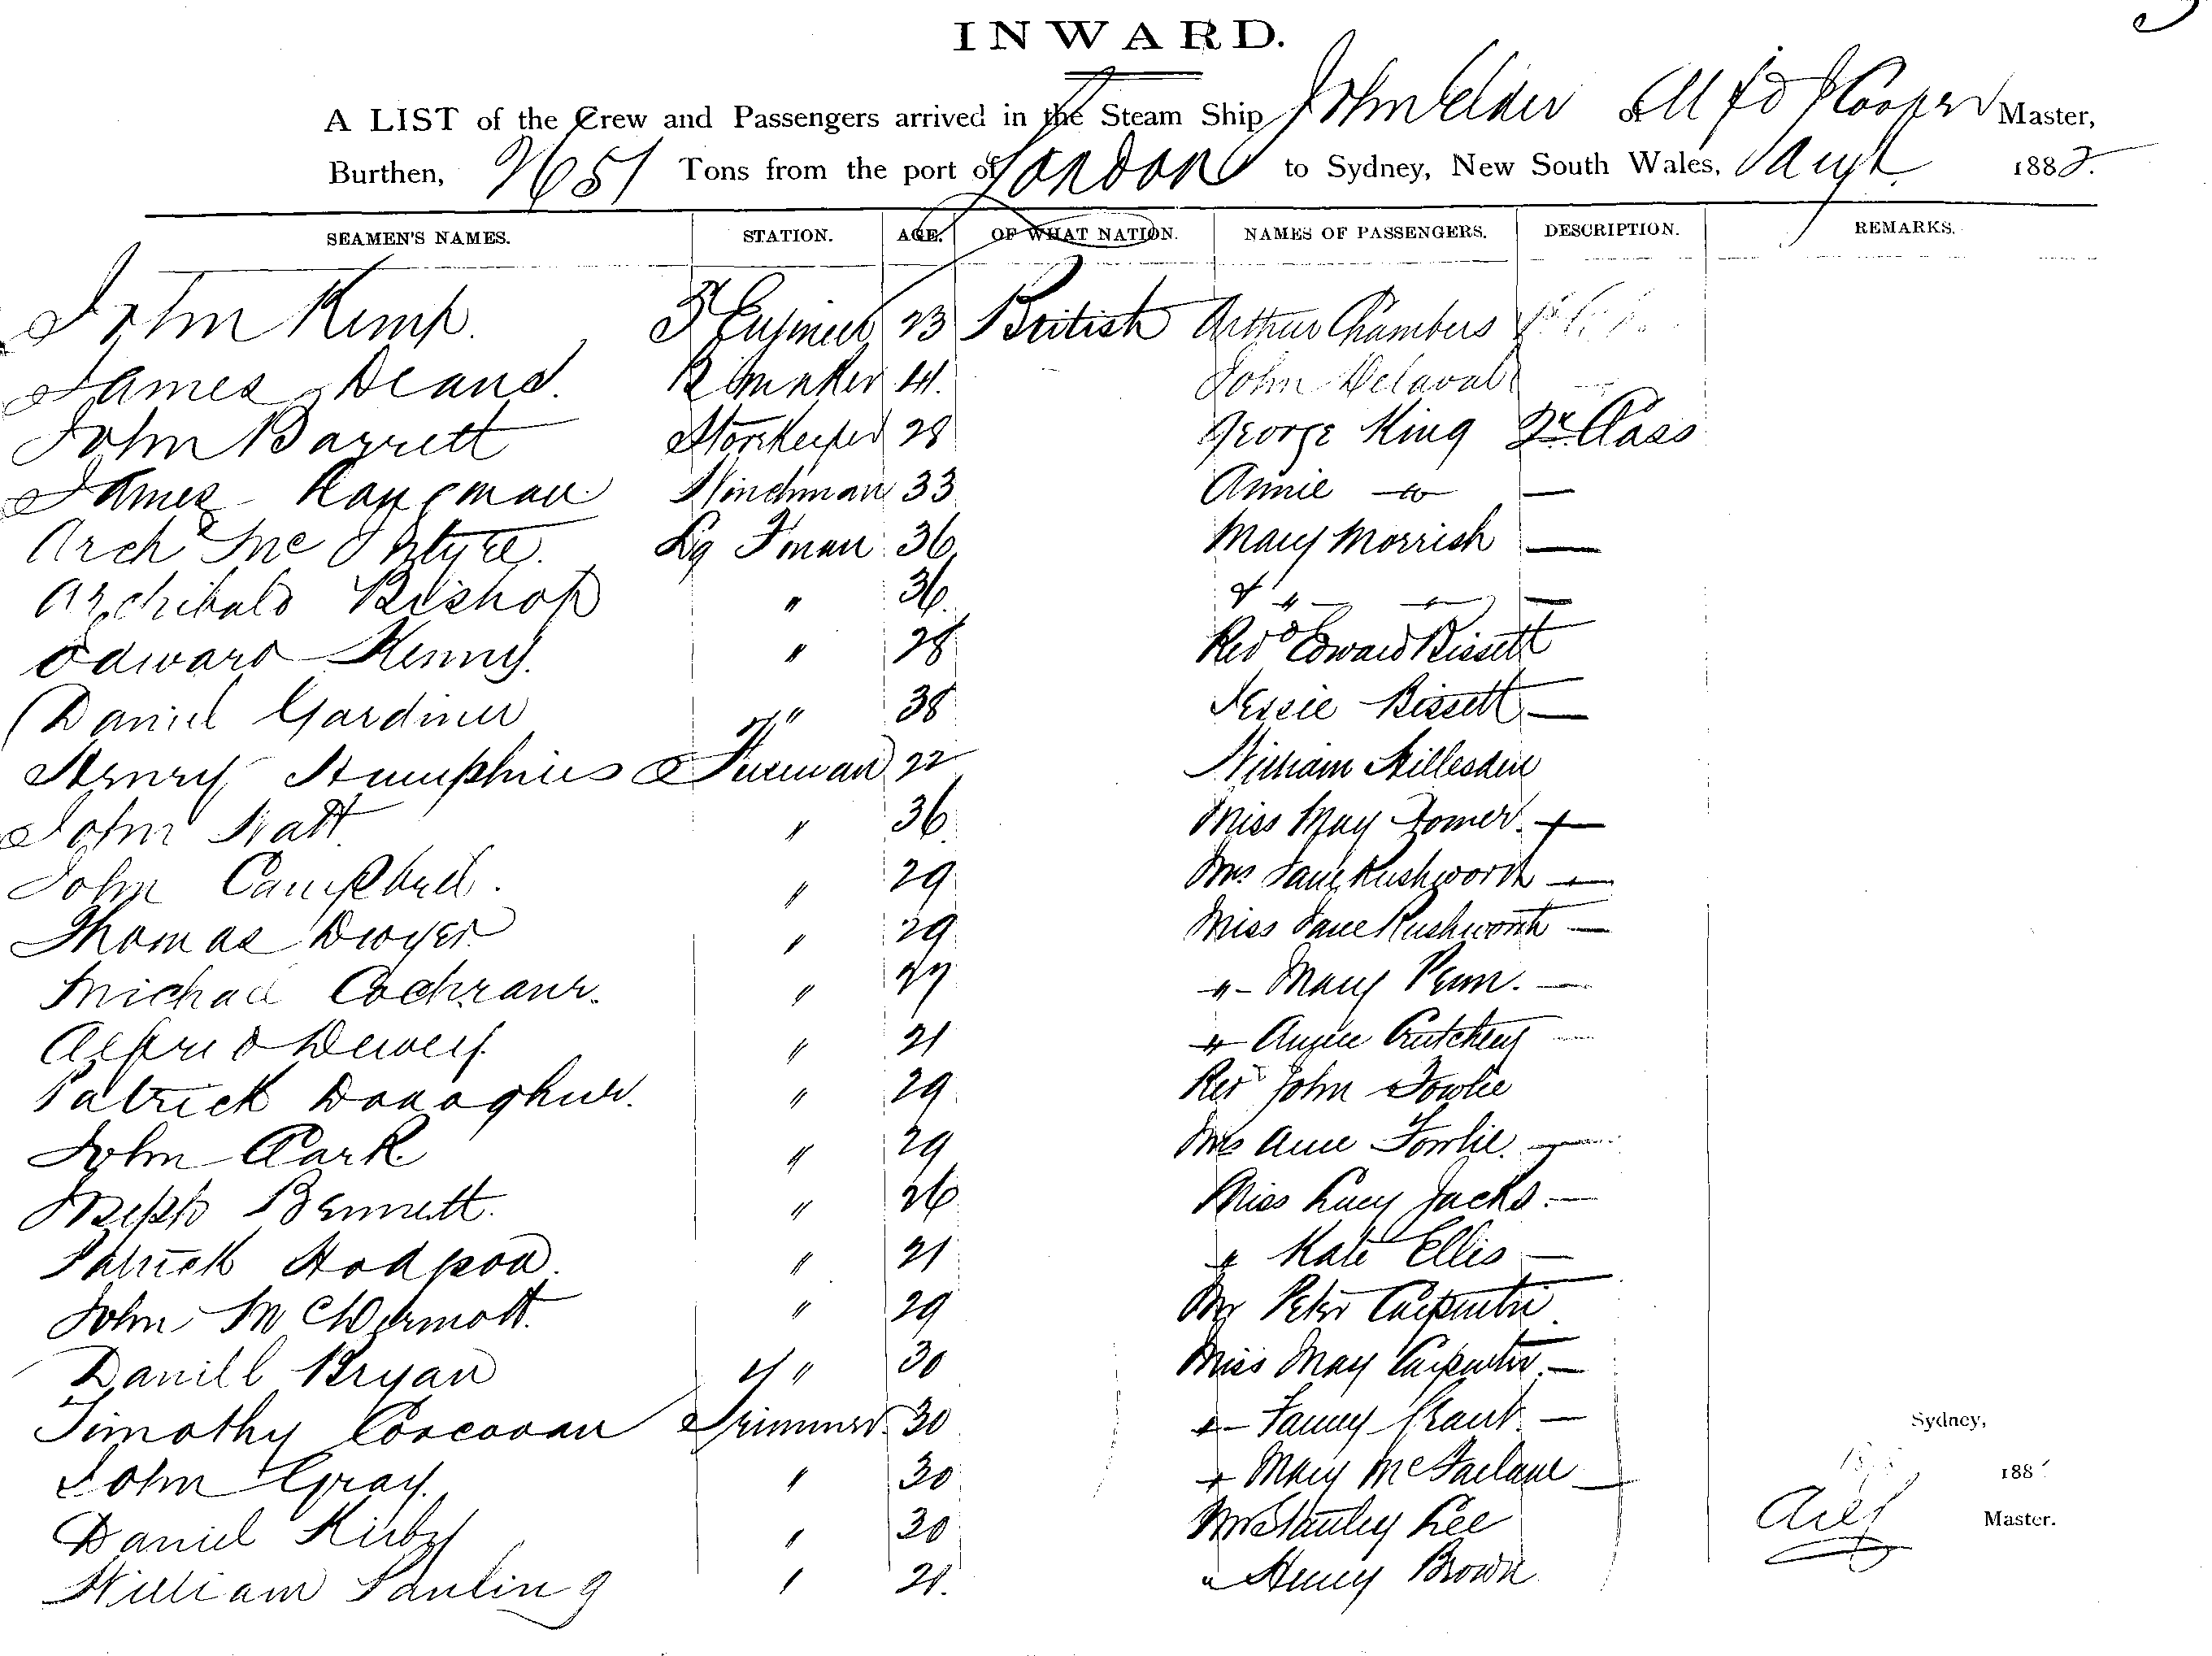 INWARD.
A LIST of the Crew and Passengers arrived in the Steam Ship John Elder of Alfd J Cooper Master,
Burthen, 2651 Tons from the port of London to Sydney, New South Wales, 1882.
SEAMEN'S NAMES. STATION. AGE. OF WHAT NATION. NAMES OF PASSENGERS. DESCRIPTION. REMARKS.
John Kemp. 3d Engineer 23 British Arthur Chambers
James Deans. B Maker 41. John Delaval
John Barrett Storekeeper 28 George King 2d Class
James Winchman 33 Annie - do - —
Arch Mc Intyre. Lg Fman 36 Mary Morrish —
Archibald Bishop " 36 " —
Edward Kenny. " 28 Revd Edward Bissett
Daniel Gardiner " 38 Jessie Bissett —
Henry Humphries Fireman 22 William Hillesden
John Watt " 36 Miss May —
John Campbell. " 29 Mrs Jane Rushworth —
Thomas Dwyer " 29 Miss Jane Rushworth —
Michael Cochrane. " 27 " Mary Penn. —
Alfred Dewey. " 21 " Annie —
Patrick Donoghue. " 29 Revd John Fowlie
John Clark " 29 Mrs Anne Fowlie. —
Joseph Bennett. " 26 Miss Lucy Jacks. —
Patrick " 21 " Kate Ellis —
John McDermott. " 29 Mr Peter Carpenter
Daniel Bryan " 30 Miss May Carpenter. —
Timothy Corcoran Trimmer 30 " Fanny Grant —
Sydney,
John Gray. " 30 " Mary McFarlane —
188
Daniel Kirby " 30 Mr Stanley Lee
Master.
William Pauling " 21. " Henry Brown